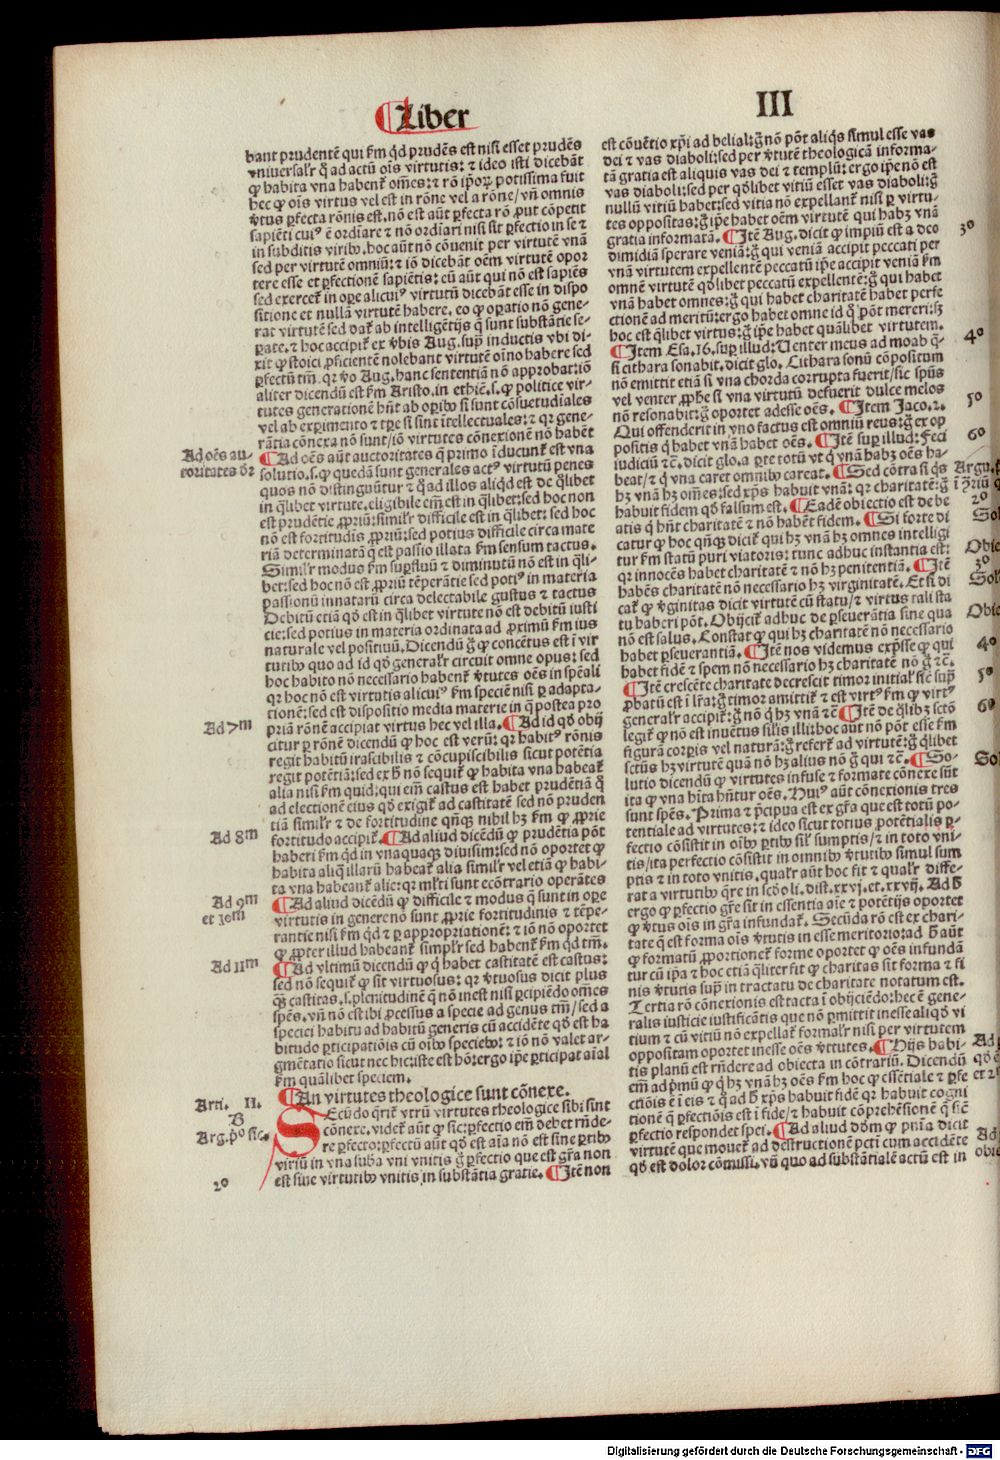 Liber III
bant prudentē qui ẜm qd prudēs est nisi esset prudēs
vniuersalr̄ q̄ ad actū oīs virtutis: ⁊ ideo isti dicebāt
ꝙ habita vna habenꝉ om̄es: ⁊ rō ip̄oꝝ potissima fuit
hec ꝙ oīs virtus vel est in rōne vel a rōne/ vn̄ omnis
v̄tus ꝑfecta rōnis est. nō est aūt ꝑfecta rō ꝓut cōpetit
sapiēti cuiꝰ ē ordiare ⁊ nō ordinari nisi sit ꝑfectio in se ⁊
in subditis viribꝰ. hoc aūt nō cōuenit per virtutē vnā
sed per virtutē omniū: ⁊ iō dicebāt oēm virtutē opor
tere esse et ꝑfectionē sapiētis: cū aūt qui nō est sapiēs
sed exercet in oꝑe alicuiꝰ virtutū dicebāt esse in dispo
sitione et nullā virtutē habere. eo ꝙ oꝑatio nō gene-
rat virtutē sed datꝉ ab intelligētijs q̄ sunt substātie se-
ꝑate. ⁊ hoc accipitꝉ ex v̄bis Aug. supꝰ inductis vbi di-
xit ꝙ stoici ꝓficientē nolebant virtutē oīno habere sed
ꝑfectū tm̄. qꝛ v̄o Aug. hanc sententiā nō approbat: iō
aliter dicendū est ẜm Aristo. in ethic̄. s. ꝙ politice vir-
tutes generationē hn̄t ab oꝑibꝰ si sunt cōsuetudiales
vel ab exꝑimento ⁊ tꝑe si sint ītellectuales: ⁊ qꝛ gene-
rātia cōnexa nō sunt/ iō virtutes cōnexionē nō habēt
Ad oēs au-
ctoritates ...
¶Ad oēs aūt auctoritates q̄ primo īducunꝉ est vna
solutio. s. ꝙ quedā sunt generales actꝰ virtutū penes
quos nō distinguūtur ⁊ q̄ ad illos aliqd est de qĺibet
in qĺibet virtute. eligibile em̄ est in qĺibet: sed hoc non
est prudētie ꝓpriū: similr̄ difficile est in qĺibet: sed hoc
nō est fortitudis ꝓpriū: sed potius difficile circa mate
riā determinatā q̄ est passio illata ẜm sensum tactus.
Similr̄ modus ẜm suꝑfluū ⁊ diminutū nō est in qĺi-
bet: sed hoc nō est ꝓpriū tēperātie sed potiꝰ in materia
passionū innatarū circa delectabile gustus ⁊ tactus
Debitū etiā qd est in qĺibet virtute nō est debitū iusti
cie: sed potius in materia ordinata ad ꝓximū ẜm ius
naturale vel positiuū. Dicendū g̊ ꝙ concētus est ī vir
tutibꝰ quo ad id qd generalr̄ circuit omne opus: sed
hoc habito nō necessario habenꝉ v̄tutes oēs in sp̄eāli
qꝛ hoc nō est virtutis alicuiꝰ ẜm speciē nisi ꝑ adapta-
tionē: sed est dispositio media materie in q̄ postea pro
Ad 7m
priā rōnē accipiat virtus hec vel illa. ¶Ad id qd obij
citur ꝑ rōnē dicendū ꝙ hoc est verū: qꝛ habitꝰ rōnis
regit habitū irascibilis ⁊ cōcupiscibilis sicut potētia
regit potētiā: sed ex h̄ nō sequitꝉ ꝙ habita vna habeatꝉ
alia nisi ẜm quid: qui em̄ castus est habet prudētiā q̄
ad electionē eius qd exigitꝉ ad castitatē sed nō pruden
tiā similr̄ ⁊ de fortitudine qn̄qꝫ nihil hꝫ ẜm ꝙ ꝓprie
Ad 8m
fortitudo accipitꝉ. ¶Ad aliud dicēdū ꝙ prudētia pōt
haberi ẜm qd in vnaquaqꝫ diuisim: sed nō oportet ꝙ
habita aliq̄ illarū habeatꝉ alia similr̄ vel etiā ꝙ habi-
ta vna habeantꝉ alie: qꝛ ml̄ti sunt ecōtrario operātes
Ad 9m
et 10m
¶Ad aliud dicēdū ꝙ difficile ⁊ modus q̄ sunt in oꝑe
virtutis in genere nō sunt ꝓprie fortitudinis ⁊ tēpe-
rantie nisi ẜm qd ⁊ ꝑ appropriationē: ⁊ iō nō oportet
ꝙ ꝓpter illud habeantꝉ simplr̄ sed habentꝉ ẜm qd tm̄.
Ad 11m
¶Ad vltimū dicendū ꝙ q̄ habet castitatē est castus:
sed nō sequitꝉ ꝙ sit virtuosus: qꝛ v̄tuosus dicit plus
qꝫ castitas. s. plenitudinē q̄ nō inest nisi ꝑcipiēdo om̄es
spēs. vn̄ nō est ibi ꝓcessus a specie ad genus tm̄/ sed a
speciei habitu ad habitū generis cū accidēte qd est ha
bitudo ꝑticipatiōis cū oībꝰ speciebꝰ: ⁊ iō nō valet ar-
gmētatio sicut nec hic: iuste est hō: ergo ip̄e ꝑticipat aīal
ẜm quālibet speciem.
Arti. II.
¶An virtutes theologice sunt cōnexe.
B
Arg. pº sic.
Secūdo qrit̄ vtrū virtutes theologice sibi sint
cōnexe. videtꝉ aūt ꝙ sic: ꝑfectio em̄ debet rn̄de-
re ꝑfecto: ꝑfectū aūt qd est aīa nō est sine ꝑtibꝰ
viriū in vna suba vni vnitis g̊ ꝑfectio que est gr̄a non
2º
est siue virtutibꝰ vnitis in substātia gratie. ¶Itē non
est cōuētio xp̄i ad belial: g̊ nō pōt aliqs simul esse vas
dei ⁊ vas diaboli: sed per v̄tutē theologicā informa-
tā gratia est aliquis vas dei ⁊ templū: ergo ip̄e nō est
vas diaboli: sed per qdĺibet vitiū esset vas diaboli: g̊
nullū vitiū habet: sed vitia nō expellantꝉ nisi ꝑ virtu-
tes oppositas: g̊ ip̄e habet oēm virtutē qui habꝫ vnā
3º
gratia informatā. ¶Itē Aug. dicit ꝙ impiū est a deo
dimidiā sperare veniā: g̊ qui veniā accipit peccati per
vnā virtutem expellentē peccatū ip̄e accipit veniā ẜm
omnē virtutē qdĺibet peccatū expellentē: g̊ qui habet
vnā habet omnes: g̊ qui habet charitatē habet perfe
ctionē ad meritū: ergo habet omne id q̄ pōt mereri: sꝫ
hoc est qĺibet virtus: g̊ ip̄e habet quāĺibet virtutem.
4º
¶Item Esa. 16. suꝑ illud: Venter meus ad moab q̄-
si cithara sonabit. dicit glo. Cithara sonū cōpositum
nō emittit etiā si vna chorda corrupta fuerit/ sic sp̄ūs
vel venter ꝓph̄e si vna virtutū defuerit dulce melos
5º
nō resonabit: g̊ oportet adesse oēs. ¶Item Jaco. 2.
Qui offenderit in vno factus est omniū reus: g̊ ex op
6º
positis q̄ habet vnā habet oēs. ¶Itē suꝑ illud: Feci
iudiciū ⁊c̄. dicit glo. a ꝑte totū vt q̄ vnā habꝫ oēs ha-
beat/ ⁊ q̄ vna caret omnibꝰ careat. ¶Sed cōtra si qs
hꝫ vnā hꝫ oēs: sed xp̄s habuit vnā: qꝛ charitatē: g̊
habuit fidem qd falsum est. ¶Eadē obiectio est de be
2º
atis q̄ hn̄t charitatē ⁊ nō habēt fidem. ¶Si forte di
catur ꝙ hoc qn̄qꝫ dicitꝉ qui hꝫ vnā hꝫ omnes intelligi
tur ẜm statū puri viatoris: tunc adhuc instantia est:
3º
qꝛ innocēs habet charitatē ⁊ nō hꝫ penitentiā. ¶Itē
habēs charitatē nō necessario hꝫ virginitatē. Et si di
catꝉ ꝙ v̄ginitas dicit virtutē cū statu/ ⁊ virtus tali sta
tu haberi pōt. Obijcitꝉ adhuc de ꝑseuerātia sine qua
nō est salus. Constat ꝙ qui hꝫ charitatē nō necessario
4º
habet ꝑseuerantiā. ¶Itē nos videmus exp̄sse ꝙ qui
habet fidē ⁊ spem nō necessario hꝫ charitatē nō g̊ ⁊c̄.
5º
¶Itē crescēte charitate decrescit timor initialꝭ sic suꝑ
ꝓbatū est ī lr̄a: g̊ timor amittitꝉ ⁊ est virtꝰ ẜm ꝙ virtꝰ
6º
generalr̄ accipitꝉ: g̊ nō q̄ hꝫ vnā ⁊c̄ ¶Itē de qĺibꝫ sctō
legitꝉ ꝙ nō est inuētus silis illi: hoc aūt nō pōt esse ẜm
figurā corꝑis vel naturā: g̊ refertꝉ ad virtutē: g̊ qĺibet
sctūs hꝫ virtutē quā nō hꝫ alius nō g̊ qui ⁊c̄. ¶So-
lutio dicendū ꝙ virtutes infuse ⁊ formate cōnexe sūt
ita ꝙ vna hīta hn̄tur oēs. Huiꝰ aūt cōnexionis tres
sunt spēs. Prima ⁊ p̄cipua est ex gr̄a que est totū po-
tentiale ad virtutes: ⁊ ideo sicut totius ꝓtētialis ꝑ-
fectio cōsistit in oībꝰ ꝑtibꝰ sil̄ sumptis/ ⁊ in toto vni-
tis/ ita perfectio cōsistit in omnibꝰ v̄tutibꝰ simul sum
ptis ⁊ in toto vnitis. qualr̄ aūt hoc fit ⁊ qualr̄ diffe-
rat a virtutibꝰ qre in scd̄o li. dist. xxvj. et. xxvij. Ad h̄
ergo ꝙ ꝑfectio gr̄e sit in essentia aīe ⁊ potētijs oportet
ꝙ v̄tus oīs in gr̄a infundatꝉ. Secūda rō est ex chari-
tate q̄ est forma oīs v̄tutis in esse meritorio: ad h̄ aūt
ꝙ formatū ꝓportionetꝉ forme oportet ꝙ oēs infundā
tur cū ip̄a ⁊ hoc etiā qliter fit ꝙ charitas sit forma ⁊ fi
nis v̄tutis supꝰ in tractatu de charitate notatum est.
Tertia rō cōnexionis est tacta ī obijciēdo: hec ē gene-
ralis iusticie iustificātis que nō ꝑmittit inesse aliqd vi
tium ⁊ cū vitiū nō expellatꝉ formalr̄ nisi per virtutem
oppositam oportet inesse oēs v̄tutes. ¶Hijs habi-
tis planū est rn̄dere ad obiecta in cōtrariū. Dicendū
em̄ ad p̄mū ꝙ q̄ hꝫ vnā hꝫ oēs ẜm hoc ꝙ essētiale ⁊ ꝑfe
ctiōis ē ī eis ⁊ q̄ ad h̄ xp̄s habuit fidē qꝛ habuit cogni
tionē q̄ ꝑfectiōis est ī fide/ ⁊ habuit cōprehēsionē q̄ sic̄
ꝑfectio respondet spei. ¶Ad aliud dd̄m ꝙ pn̄ia dicit
virtutē que mouetꝉ ad destructionē pcti cum accidēte
qd est dolor cōmissi. vn̄ quo ad substātialē actū est in